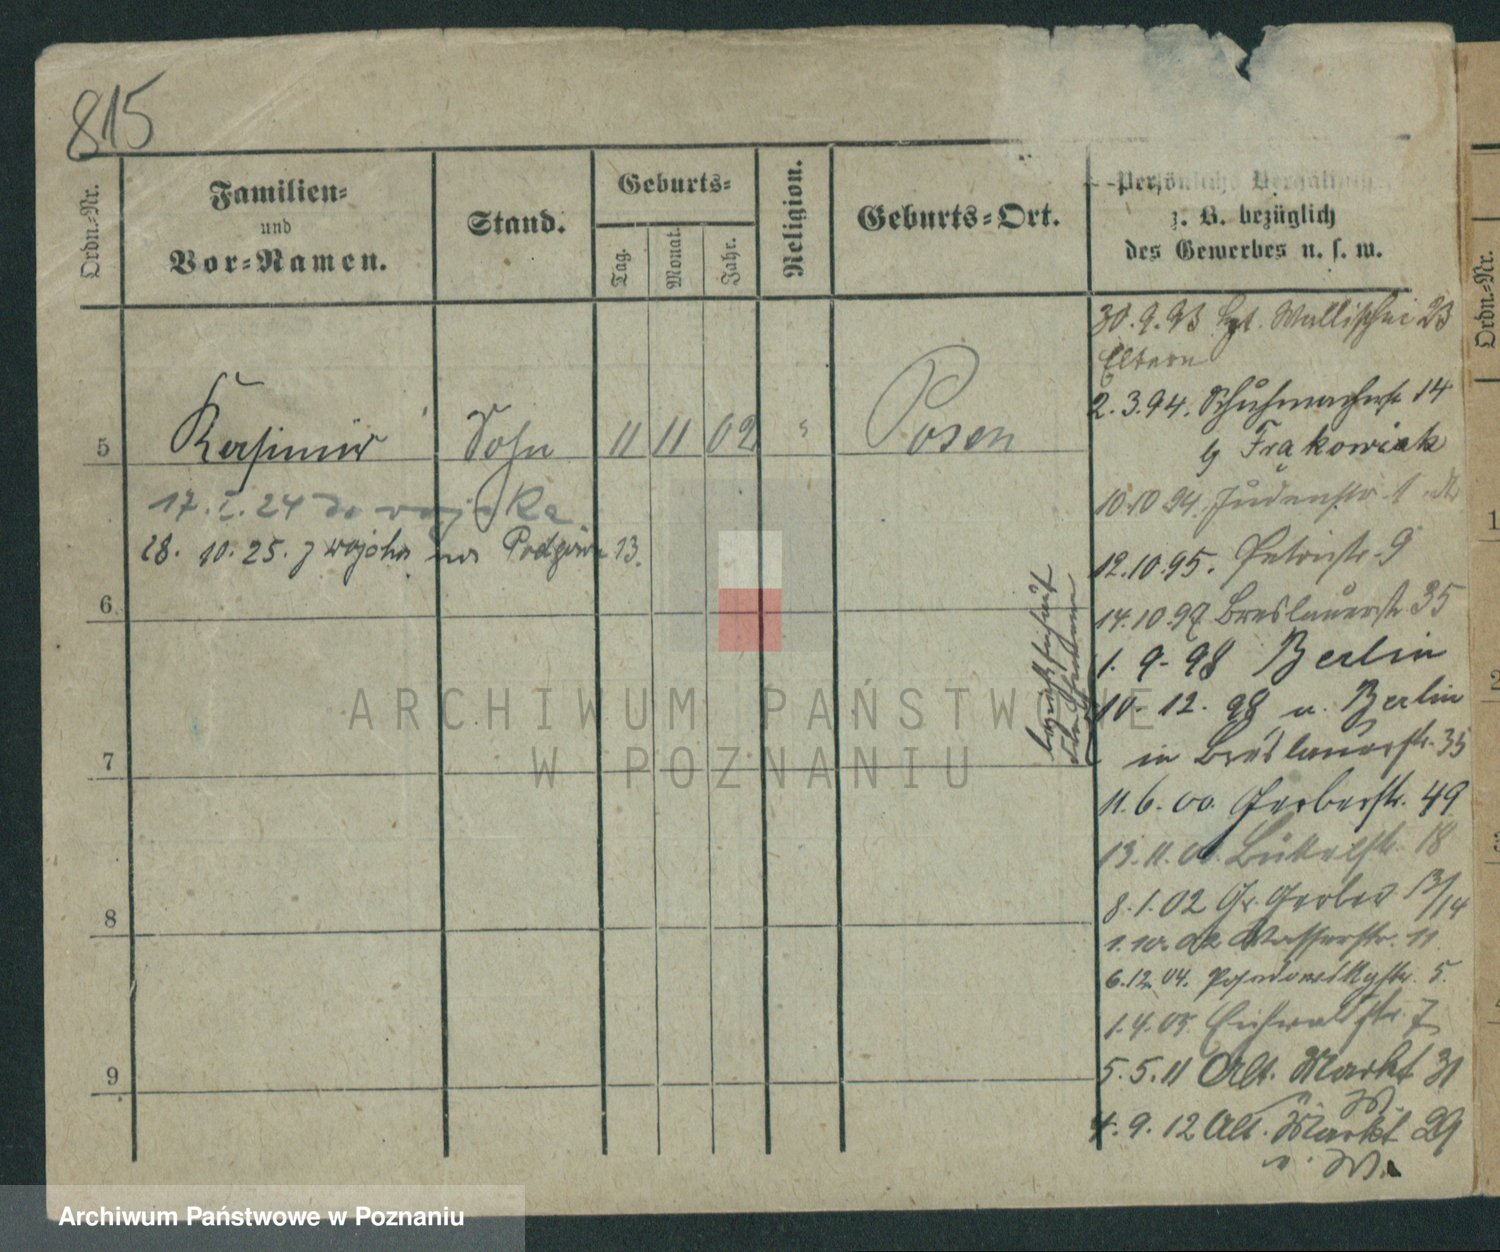 815
Ordn.=Nr.
Familien=
und
Vor=Namen.
Stand.
Geburts=
Tag.
Monat.
Jahr.
Religion.
Geburts=Ort.
Persönliche Verhältnisse
z. B. bezüglich
des Gewerbes u. s. w.
5
Kasimir
Sohn
11
11
02
"
Posen
17.I.24 do wojska
28. 10. 25. z wojska na Podgórne 13.
6
7
8
9
30.9.93 Wallischei 23
Eltern
2.3.94. Schuhmacherstr 14
b Frąkowiak
10.10 94. Judenstr 1
12.10.95. Petristr. 9
14.10.97 Breslauerstr. 35
1. 9. 98 Berlin
10. 12. 98 v. Berlin
in Breslauerstr. 35
11.6.00. Gerberstr. 49
13.11.00. Büttelstr. 18
8.1.02 Gr. Gerber 13/14
1.10.02 Wasserstr. 11
6.12.04. Posadowskystr. 5.
1.4.05 Eichwaldstr 7
5.5.11 Alt. Markt 31
4.9.12 Alt. Markt 29
Ordn.=Nr.
1
2
ARCHIWUM PAŃSTWOWE
W POZNANIU
Archiwum Państwowe w Poznaniu